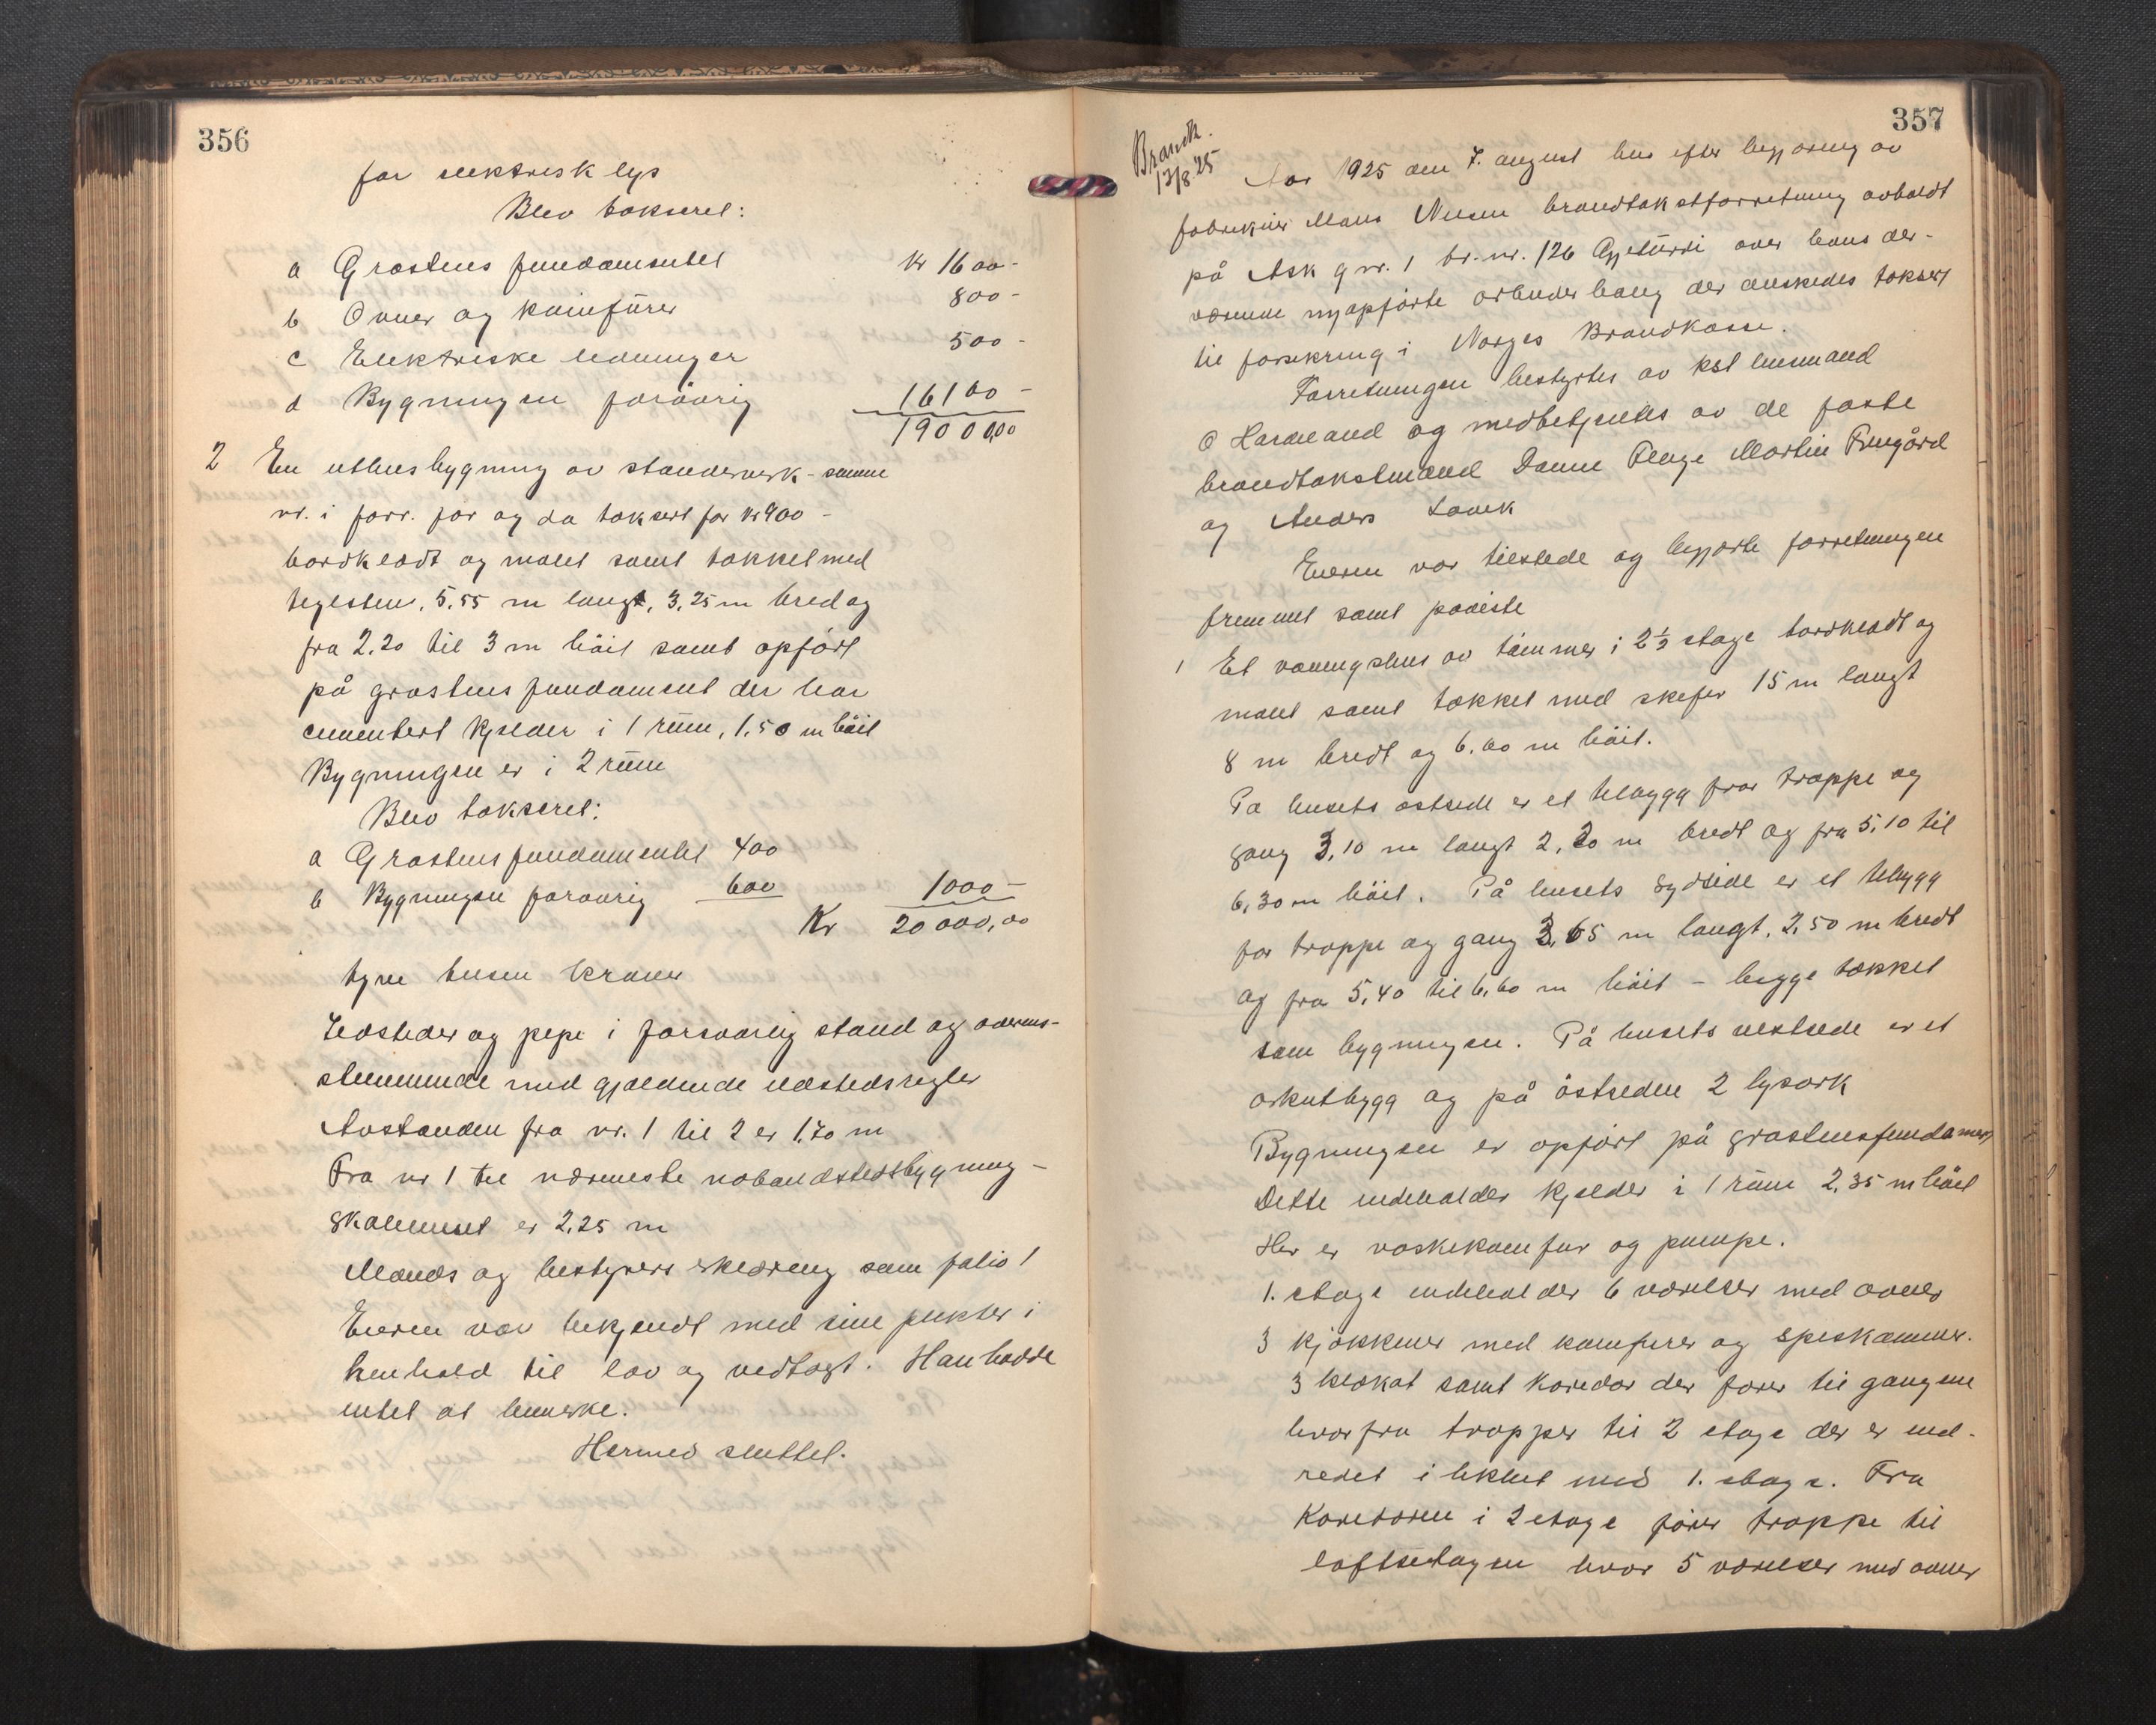 356
for elektrisk lys
Blev taksert:
a Gråstens fundamentet Kr 1600-
b Ovner og kamfürer 800-
c Elektriske ledninger 500-
d Bygningen forøvrig 16100-
19000,00
2 En uthusbygning av standerverk - samme
nr. i forr. for og da taksert for kr 900-
bordklædt og malet samt tækket med
teglsten, 5,55 m langt, 3,25 m bred og
fra 2.20 til 3 m höit samt opfört
på gråstens fundament der har
cementert kjelder i 1 rüm, 1,50 m höit
Bygningen er i 2 rüm
Blev taksert:
a Gråstens fundamentet 400
b Bygningen forøvrig 600 1000-
Kr 20000,00
tyve tusen kroner
Ildsteder og pipe i forsvarlig stand og overens-
stemmende med gjældende ildstedsregler
Avstanden fra nr. 1 til 2 er 1,70 m
Fra nr 1 til nærmeste nabo
er 2,25 m
Mænds og bestyrers erklæring som folio 1
Eieren var bekjendt med sine pligter i
henhold til lov og vedtægt. Han hadde
intet at bemerke.
Hermed sluttet.
357
Brandk.
13/8 25
Aar 1925 den 7. august blev efter begjæring av
fabrikeier Mons Nilsen brandtakstforretning avholdt
på Ask g nr. 1 br. nr. 126 over hans der-
værende nyopførte arbeiderbolig der ønskedes taksert
til forsikring i Norges Brandkasse.
Forretningen bestyrtes av kst lensmand
O Hardeland og medbetjentes av de faste
brandtakstmænd Martin
og Anders
Eieren var tilstede og begjærte forretningen
fremmet samt påviste
1 Et våningshus av tømmer i 2½ etage bordklædt og
malet samt tækket med skifer 15 m langt
8 m bredt og 6.60 m höit.
På husets østside er et tilbygg for trappe og
gang 3,10 m langt 2,20 m bredt og fra 5,10 til
6,30 m höit. På husets sydside er et tilbygg
for trappe og gang 3,65 m langt, 2,50 m bredt
og fra 5,40 til 6,60 m höit - begge tækket
som bygningen. På husets vestside er et
arkutbygg og på östsiden 2 lysark
Bygningen er opfört på gråstensfundament
Dette indeholder kjelder i 1 rüm 2,35 m höit
Her er vaskekamfur og pumpe.
1. etage indeholder 6 værelser med ovner
3 kjøkkener med kamfurer og spiskammer.
3 klokat samt koridor der fører til gangene
hvorfra trapper til 2 etage der er ind-
redet i likhet med 1. etage. Fra
koridoren i 2 etage fører trappe til
loftsetagen hvor 5 værelser med ovner